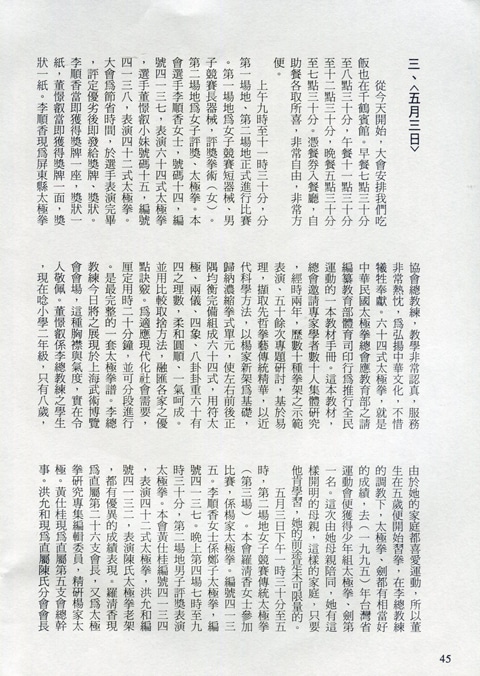 三、〈五月三日〉
從今天開始，大會安排我們吃
飯也在千鶴賓館。早餐七點三十分
至八點三十分，午餐十一點三十分
至十二點三十分，晚餐五點三十分
至七點三十分。憑餐券入餐廳，自
助餐各取所喜，非常自由，非常方
便。
上午九時至十一時三十分，分
第一場地、第二場地正式進行比賽
。第一場地為女子競賽短器械、男
子競賽長器械，評獎拳術（女）。
第二場地為女子評獎、太極拳。本
會選手李順香女士，號碼十四，編
號四一三七，表演六十四式太極拳
，選手董憬叡小妹號碼十五，編號
四一三八，表演四十二式太極拳。
大會爲節省時間，於選手表演完畢
，評定優劣後即發給獎牌、獎狀。
李順香當即獲得獎牌一座，獎狀一
紙，董憬叡當即獲得獎牌一面，獎
狀一紙。李順香現爲屏東縣太極拳
協會總教練，教學非常認真，服務
非常熱忱，爲弘揚中華文化，不惜
犧牲奉獻。六十四式太極拳，就是
中華民國太極拳總會應教育部之請
編纂教育部體育司印行爲推行全民
運動的一本教材手冊。這本教材，
總會邀請專家學者數十人集體研究
，經時兩年，歷數十種拳架之示範
表演、五十餘次專題研討，基於易
理，擷取先哲拳藝傳統精華，以近
代科學方法，以楊家新架爲基礎，
歸納濃縮拳式單元，使左右前後正
隅均衡完備組成六十四式，用符太
極、兩儀、四象、八卦卦重六十有
四之理數，柔和圓順、一氣呵成。
並用比較取捨方法，融匯各家之優
點訣竅。爲適應現代化社會需要，
厘定用時二十分鐘，並可分段進行
。是最完整的一套太極拳譜。李總
教練今日將之展現於上海武術博覽
會會場，這種胸襟與氣度，實在令
人敬佩。董憬叡係李總教練之學生
，現在唸小學二年級，只有八歲，
由於她的家庭都喜愛運動，所以董
生在五歲便開始習拳，在李總教練
的調教下，太極拳、劍都有相當好
的成績，去（一九九五）年台灣省
運動會便獲得少年組太極拳、劍第
一名。這次由她母親陪同，她有這
樣開明的母親，這樣的家庭，只要
他肯學習，她的前途是未可限量的。
五月三日下午一時三十分至五
時，第二場地女子競賽傳統太極拳
（第三場）本會羅清香女士參加
比賽，係楊家太極拳。編號四一三
五。李順香女士係鄭子太極拳，編
號四一三七。晚上第四場七時至九
時三十分，第二場地男子評獎表演
太極拳。本會黃仕桂編號四一三四
，表演四十二式太極拳，洪允和編
號四一三一，表演陳氏太極拳老架
，都有優異的成績表現。羅清香現
爲直屬第二十六支會會長，又爲太極
拳研究專集編輯委員，精研楊家太
極。黃仕桂現爲直屬第五支會總幹
事。洪允和現爲直屬陳氏分會會長
45